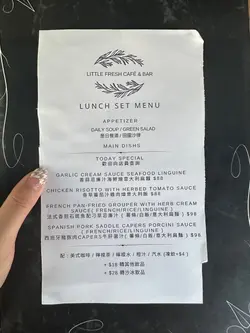 LITTLE FRESH CAFÉ & BAR
LUNCH SET MENU
APPETIZER
DAILY SOUP / GREEN SALAD
是日餐湯 / 田園沙律
MAIN DISHS
TODAY SPECIAL
歡迎向店員查詢
GARLIC CREAM SAUCE SEAFOOD LINGUINE
海鮮 意大利扁麵 $88
CHICKEN RISOTTO WITH HERBED TOMATO SAUCE
香草蕃茄汁雞肉燴意大利飯 $88
FRENCH PAN-FRIED GROUPER WITH HERB CREAM
SAUCE( FRENCH/RICE/LINGUINE )
法式香煎石斑魚配刁草忌廉汁 ( 薯條/白飯/意大利扁麵 ) $98
SPANISH PORK SADDLE CAPERS PORCINI SAUCE
( FRENCH/RICE/LINGUINE )
西班牙豬鞍肉CAPERS牛肝菌汁( 薯條/白飯/意大利扁麵 ) $98
配 : 美式咖啡 / 檸檬茶 / 檸檬水 / 橙汁 / 汽水 (凍飲+$4)
+ $18 轉其他飲品
+ $28 轉沙冰飲品